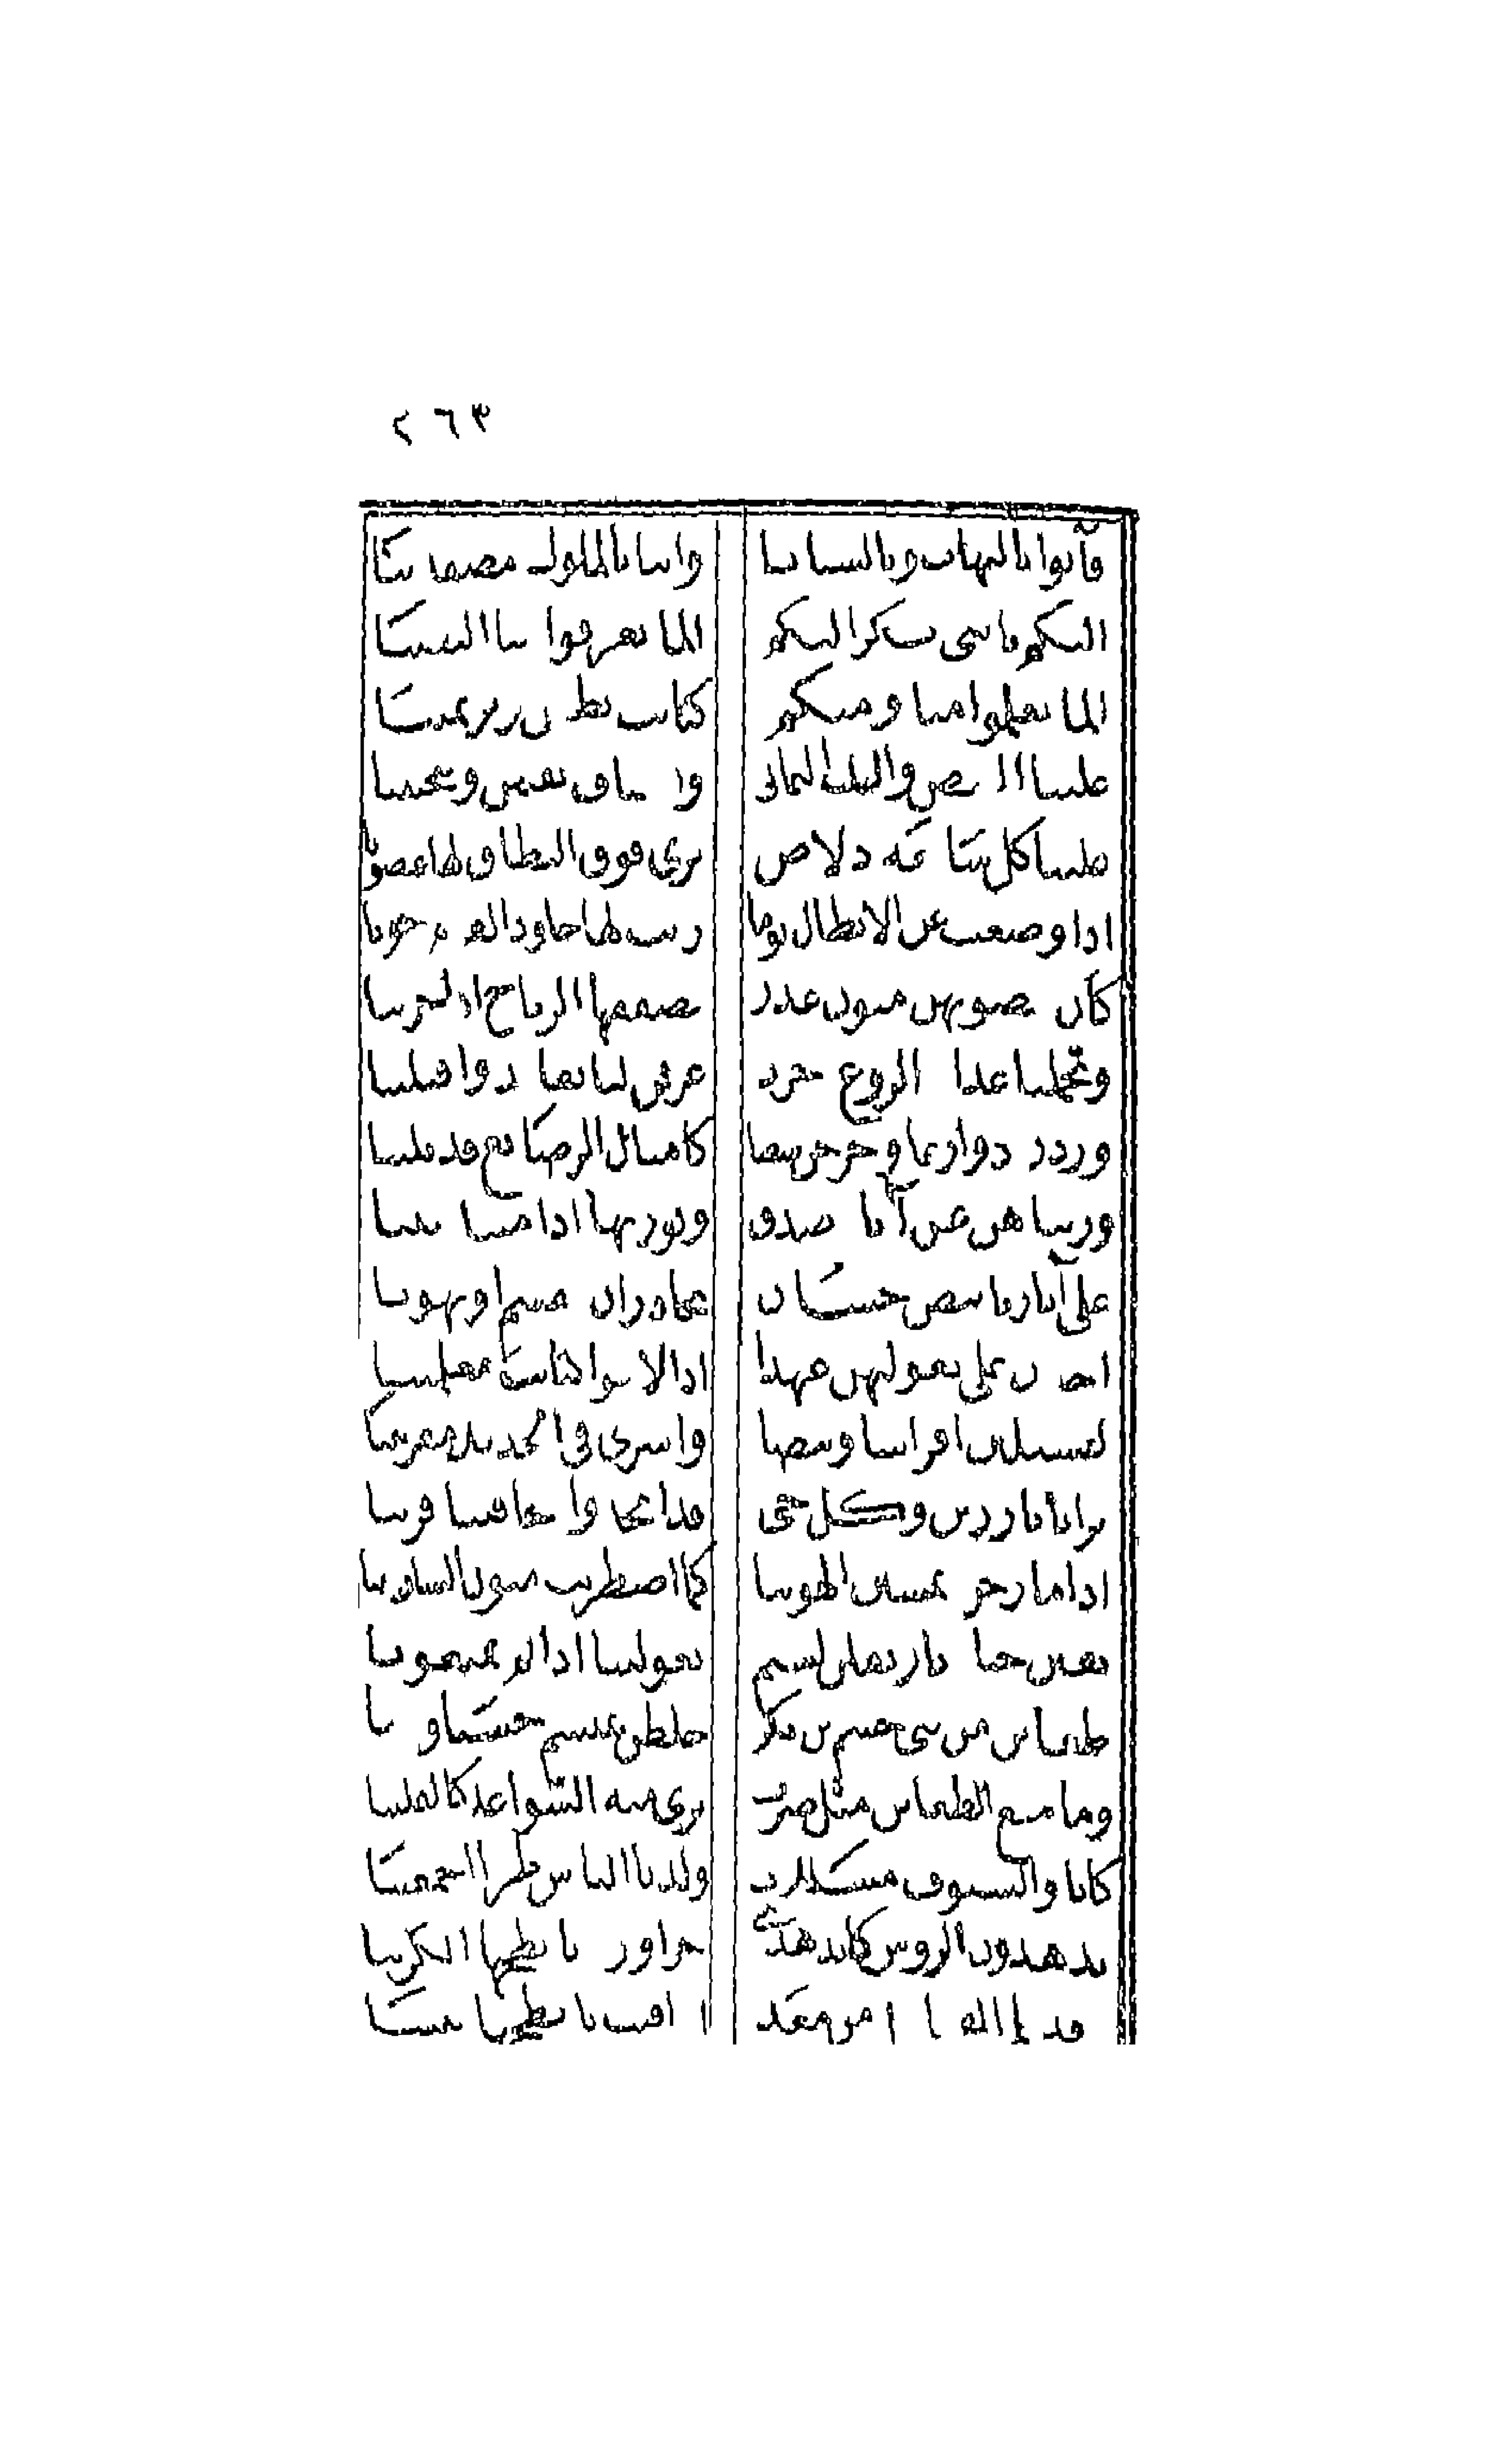 ٢٦٣
فآبوا بالنهاب وبالسبايا وابنا بالملوك مصفدينا
اليكم يا بني بكر اليكم الما تعرفوا منا اليقينا
الما تعلموا منا ومنكم كتائب يطعن ويرتمينا
علينا البيض واليلب اليماني واسياف يقمن وينحنينا
علينا كل سابغة دلاص ترى فوق النطاق لها غضونا
اذا وضعت عن الابطال يوما رايت لها جلود القوم جونا
كأن غضونهن متون غدر تصفقها الرياح اذا جرينا
وتحملنا غداة الروع جرد عرفن لنا نقائذ وافتلينا
وردن دوارعا وخرجن شعثا كامثال الرصائع قد بلينا
ورثناهن عن آباء صدق ونورثها اذا متنا بنينا
على آثارنا بيض حسان نحاذر ان تقسم او تهونا
اخذن على بعولتهن عهدا اذا لاقوا كتائب معلمينا
ليستلبن افراسا وبيضا واسرى في الحديد مقرنينا
ترانا بارزين وكل حي قد اتخذوا مخافتنا قرينا
اذا ما رحن يمشين الهوينا كما اضطربت متون الشاربينا
يقتن جيادنا ويقلن لستم بعولتنا اذا لم تمنعونا
ظعائن من بني جشم بن بكر خلطن بميسم حسبا ودينا
وما منع الظعائن مثل ضرب ترى منه السواعد كالقلينا
كأنا والسيوف مسللات ولدنا الناس طرا اجمعينا
يدهدون الروس كما تدهدي حزاورة بابطحها الكرينا
وقد علم القبائل من معد اذا قبب بابطحها بنينا